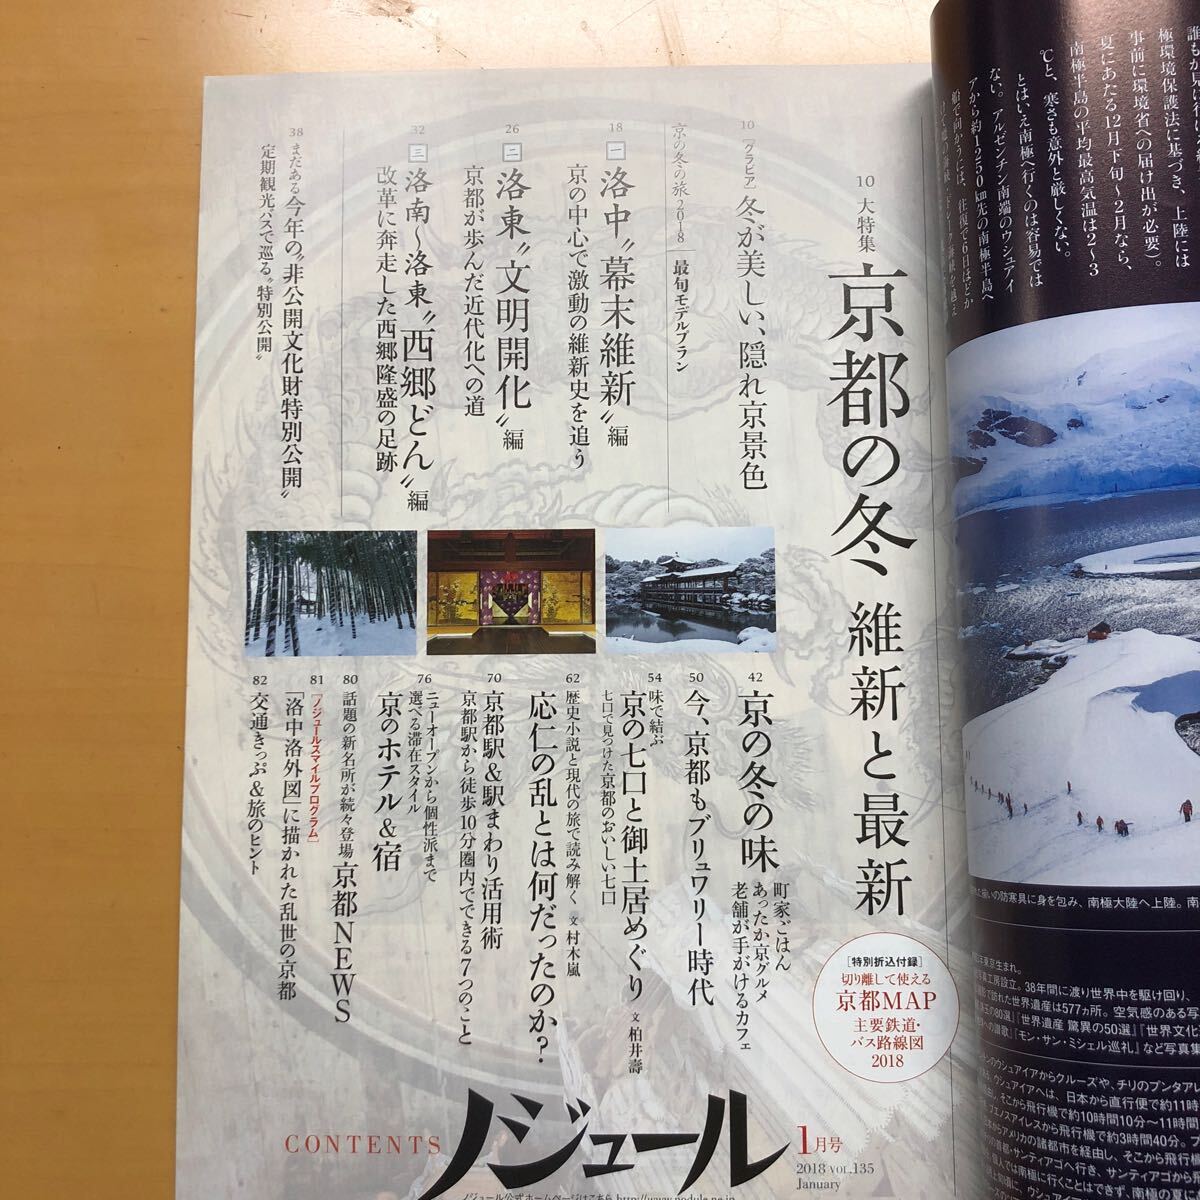 10 大特集
京都の冬 維新と最新
10 [グラビア] 冬が美しい、隠れ京景色
京の冬の旅2018 最旬モデルプラン
18 一 洛中“幕末維新”編
京の中心で激動の維新史を追う
26 二 洛東“文明開化”編
京都が歩んだ近代化への道
32 三 洛南〜洛東“西郷どん”編
改革に奔走した西郷隆盛の足跡
38 まだある今年の“非公開文化財特別公開”
定期観光バスで巡る“特別公開”
42 京の冬の味
町家ごはん
あったか京グルメ
老舗が手がけるカフェ
50 今、京都もブリュワリー時代
54 味で結ぶ
京の七口と御土居めぐり 文 柏井壽
七口で見つけた京都のおいしい七口
62 歴史小説と現代の旅で読み解く 文 村木嵐
応仁の乱とは何だったのか?
70 京都駅&駅まわり活用術
京都駅から徒歩10分圏内でできる7つのこと
76 ニューオープンから個性派まで
選べる滞在スタイル
京のホテル&宿
80 話題の新名所が続々登場 京都NEWS
81 [ノジュールスマイルプログラム]
「洛中洛外図」に描かれた乱世の京都
82 交通きっぷ&旅のヒント
[特別折込付録]
切り離して使える
京都MAP
主要鉄道・
バス路線図
2018
CONTENTS
ノジュール
1月号
2018 VOL.135
January
ノジュール公式ホームページはこちら http://www.nodule.ne.jp
極環境保護法に基づき、上陸には
事前に環境省への届け出が必要)。
夏にあたる12月下旬〜2月なら、
南極半島の平均最高気温は2〜3
℃と、寒さも意外と厳しくない。
とはいえ南極へ行くのは容易では
ない。アルゼンチン南端のウシュアイ
アから約1250km先の南極半島へ
船で向かうには、往復で6日ほどか
の防寒具に身を包み、南極大陸へ上陸。南
年東京生まれ。
工房設立。38年間に渡り世界中を駆け回り、
で訪れた世界遺産は577ヵ所。空気感のある写
の80選』『世界遺産 驚異の50選』『世界文化
への讃歌』『モン・サン・ミシェル巡礼』など写真集
のウシュアイアからクルーズや、チリのプンタアレ
ウシュアイアへは、日本から直行便で約11時
そこから飛行機で約10時間10分〜11時間
ブエノスアイレスから飛行機で約3時間40分。
アメリカの諸都市を経由し、そこから飛行機
サンティアゴへ行き、サンティアゴから